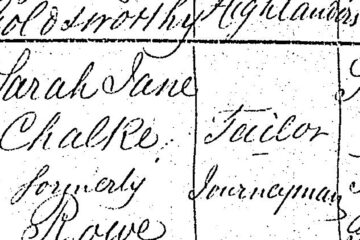 Goldsworthy Highlanders
Sarah Jane
Chalke Tailor
formerly Journeyman
Rowe